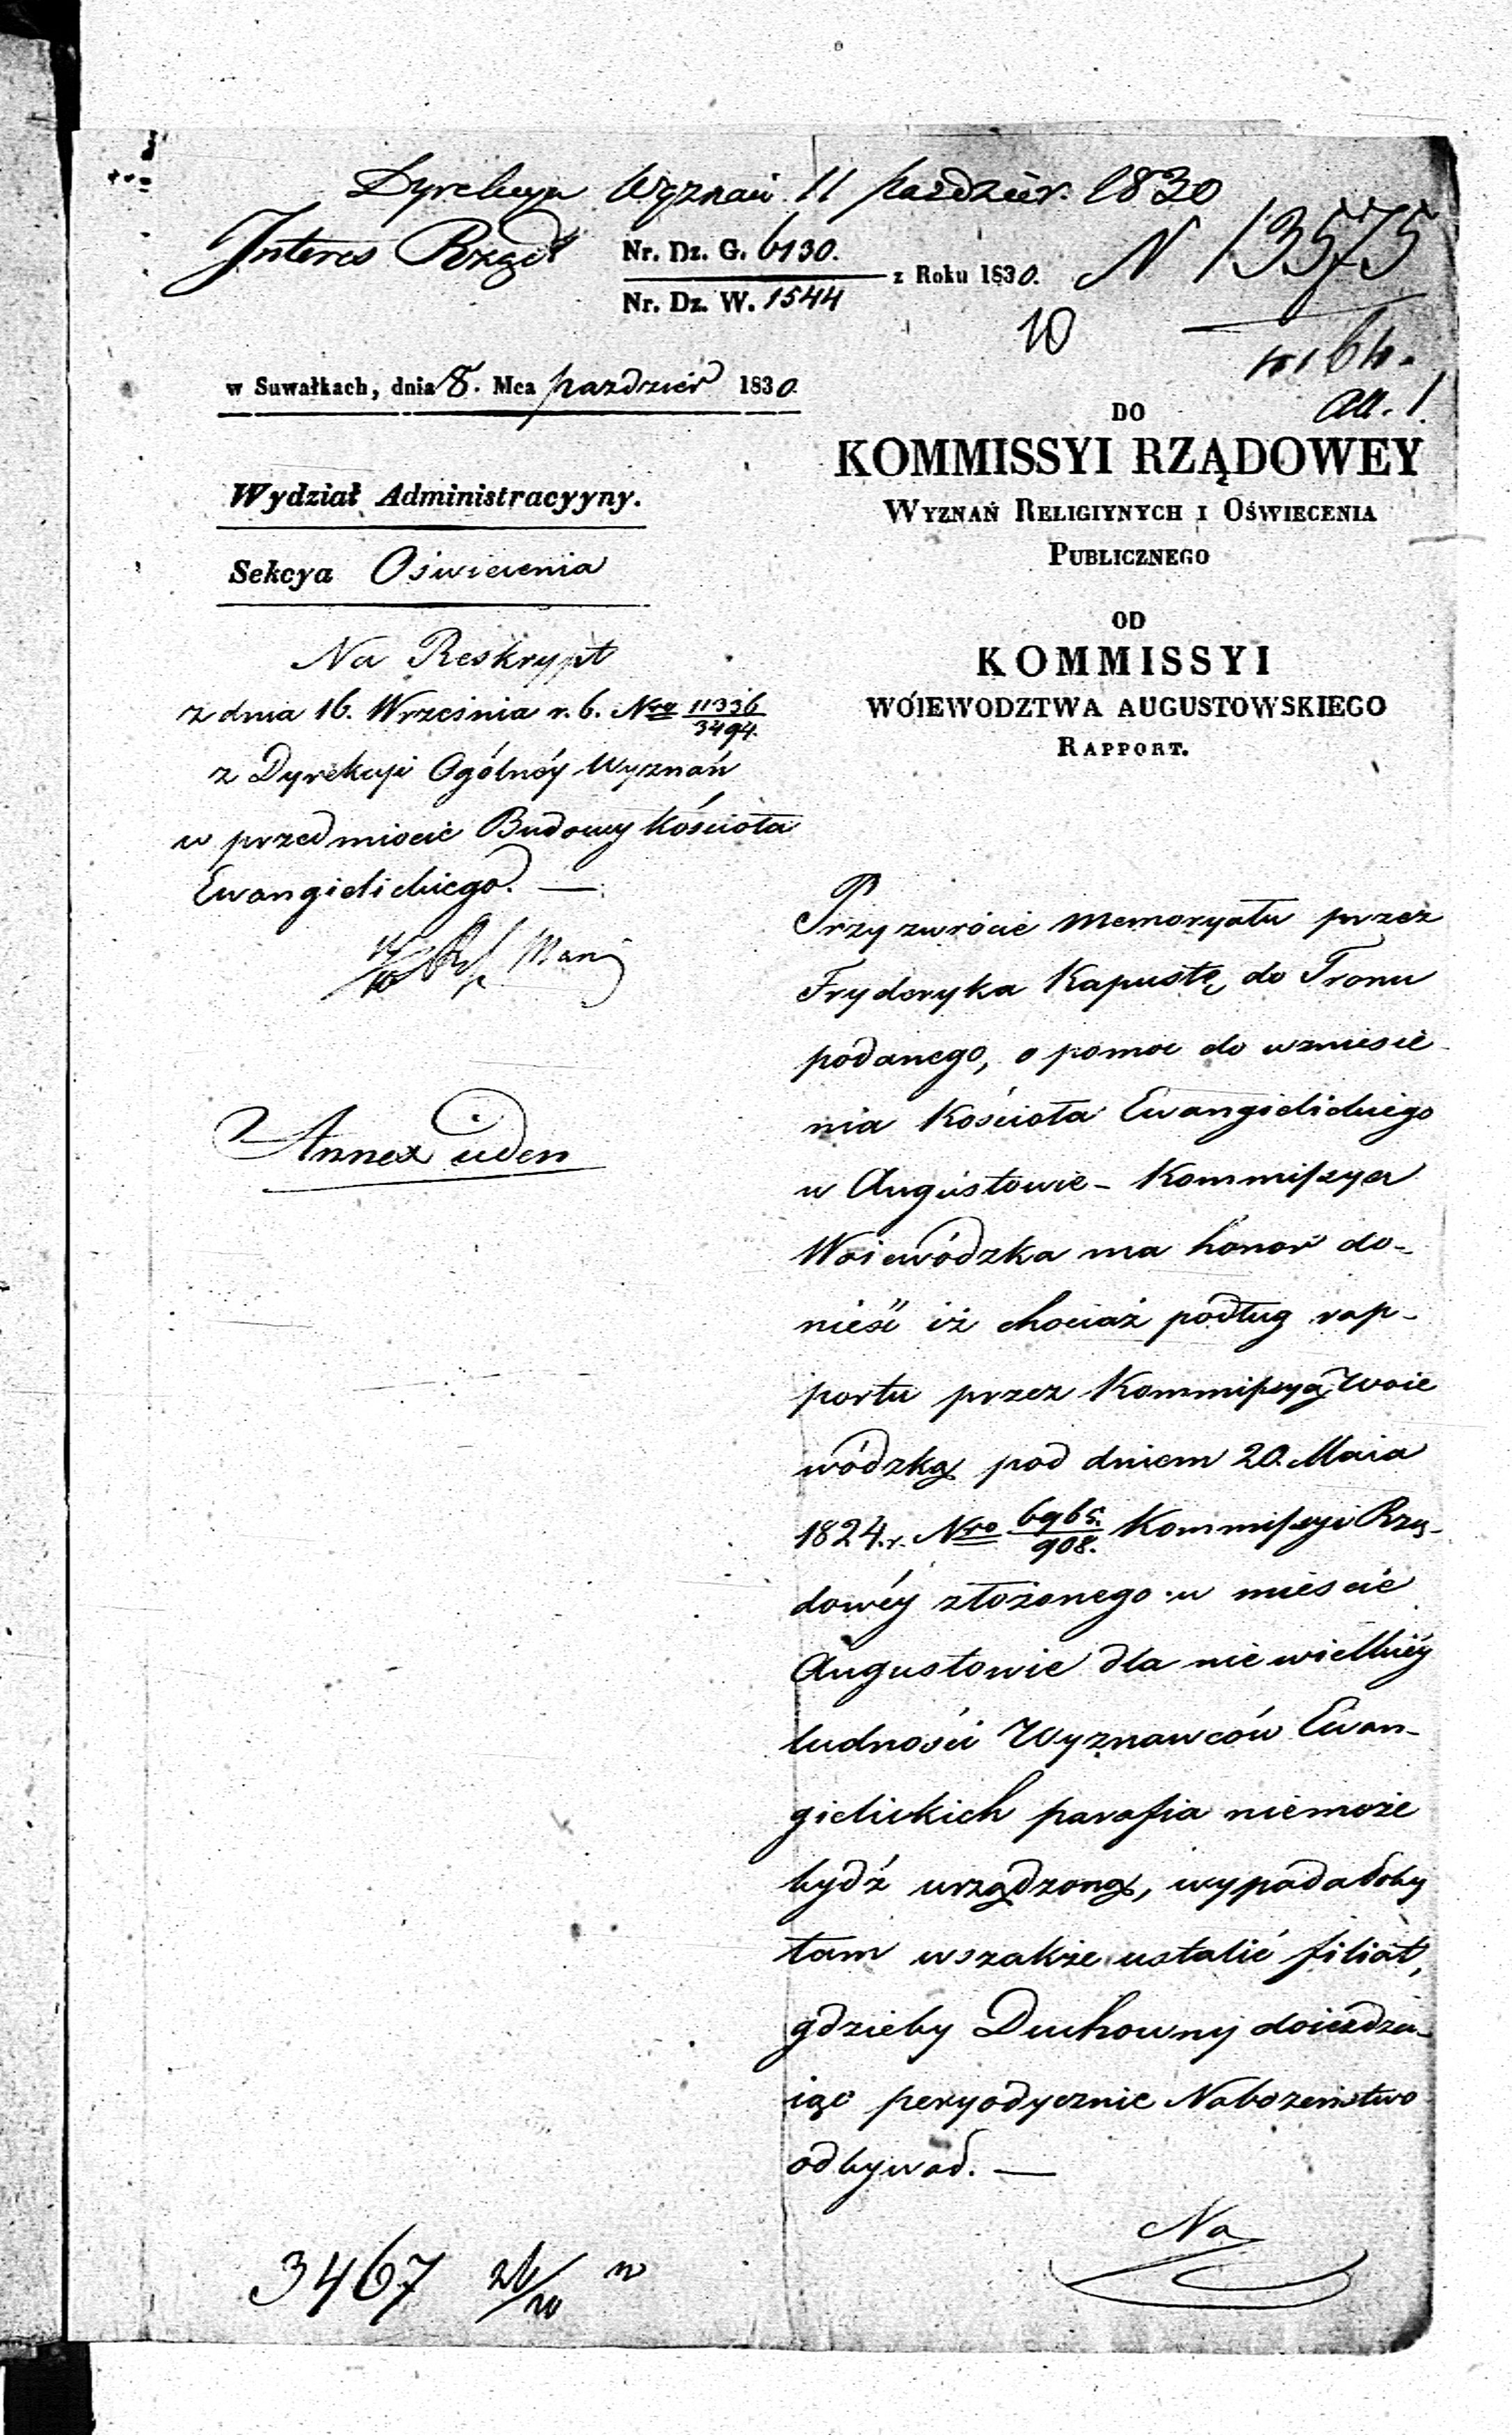 Dyrekcya Wyznań 11 Paździer. 1830
Interes Rząd
Nr. Dz. G. 6130.
Nr. Dz. W. 1544
z Roku 1830.
N 13575
10
All. 1.
w Suwałkach, dnia 8. Mca pazdzier 1830.
Wydział Administracyyny.
Sekcya Oświecenia
Na Reskrypt
z dnia 16. Września r. b. Nro 11336/3494.
z Dyrekcyi Ogólnéy Wyznań
w przedmiocie Budowy Kościoła
Ewangielickiego. —
Annex
DO
KOMMISSYI RZĄDOWEY
WYZNAŃ RELIGIYNYCH I OŚWIECENIA
PUBLICZNEGO
OD
KOMMISSYI
WOIEWODZTWA AUGUSTOWSKIEGO
RAPPORT.
Przy zwrócie Memoryału przez
Fryderyka Kapustę do Tronu
podanego, o pomoc do wzniesie-
nia Kościoła Ewangielickiego
w Augustowie – Kommissya
Woiewódzka ma honor do-
nieść iż chociaż podług rap-
portu przez Kommissyą Woie
wódzką pod dniem 20. Maia
1824. r. Nro 6965./908. Kommissyi Rzą-
dowéy złożonego w mieście
Augustowie dla nie wielkiéy
ludności Wyznawców Ewan-
gielickich parafia niemoże
bydź urządzoną, wypadałoby
tam wszakże ustalić filiał,
gdzieby Duchowny doieżdza-
iąc peryodycznie Nabożeństwo
odbywał. —
Na
3467 26/10